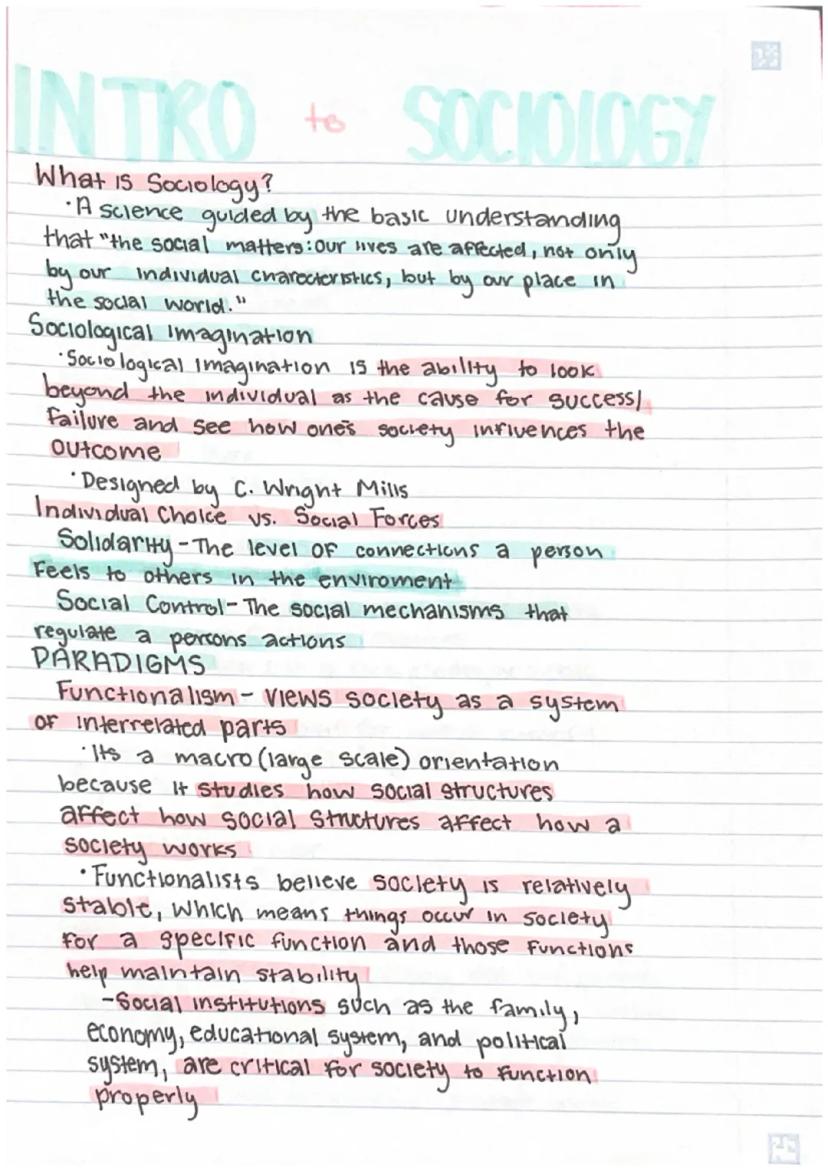 INTRO to SOCIOLOGY
What is Sociology?
·A science guided by the basic understanding
that "the social matters: our lives are affected, not only
by our individual charecteristics, but by our place in
the social world."
Sociological Imagination
·Sociological imagination is the ability to look
beyond the individual as the cause for success/
failure and see how one's society influences the
outcome
·Designed by C. Wright Mills
Individual Choice vs. Social Forces
Solidarity - The level of connections a person
feels to others in the enviroment
Social Control - The social mechanisms that
regulate a persons actions
PARADIGMS
Functionalism - views society as a system
of interrelated parts
·Its a macro (large scale) orientation
because it studies how social structures
affect how social structures affect how a
society works
·Functionalists believe society is relatively
stable, which means things occur in society
for a specific function and those functions
help maintain stability
-Social institutions such as the family,
economy, educational system, and political
system, are critical for society to function
properly